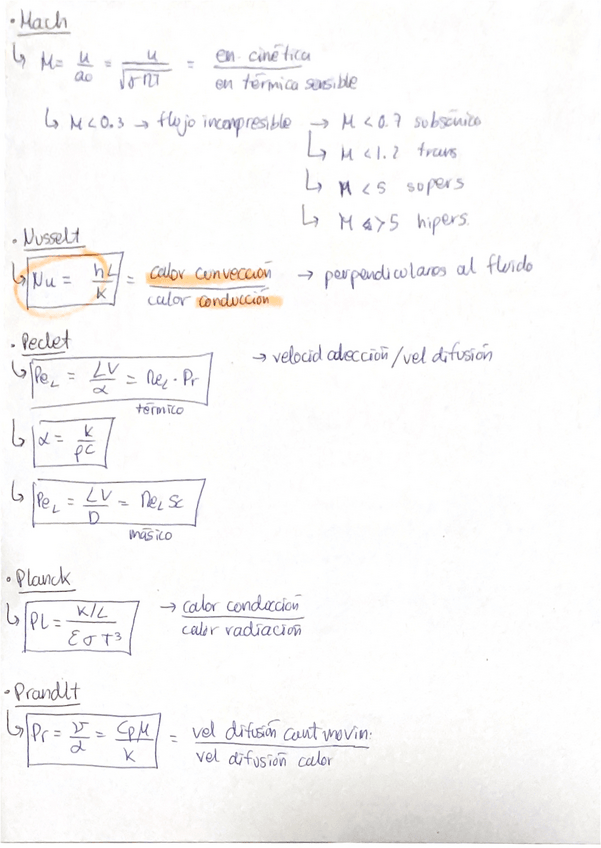 · Mach
↳ M = u/a0 = u/√(σRT) = en. cinética / en térmica sensible
↳ M < 0.3 → flujo incompresible → M < 0.7 subsónico
↳ M < 1.2 trans
↳ M < 5 supers
↳ M > 5 hipers.
· Nusselt
↳ Nu = hL/k = calor convección / calor conducción → perpendiculares al fluido
· Peclet
↳ Pe_L = LV/α = Re_L · Pr → velocid advección / vel difusión
térmico
↳ α = k/ρc
↳ Pe_L = LV/D = Re_L Sc
másico
· Planck
↳ PL = K/L / εσT³ → calor conducción / calor radiación
· Prandlt
↳ Pr = ν/α = Cpμ/K = vel difusión cant movim. / vel difusión calor